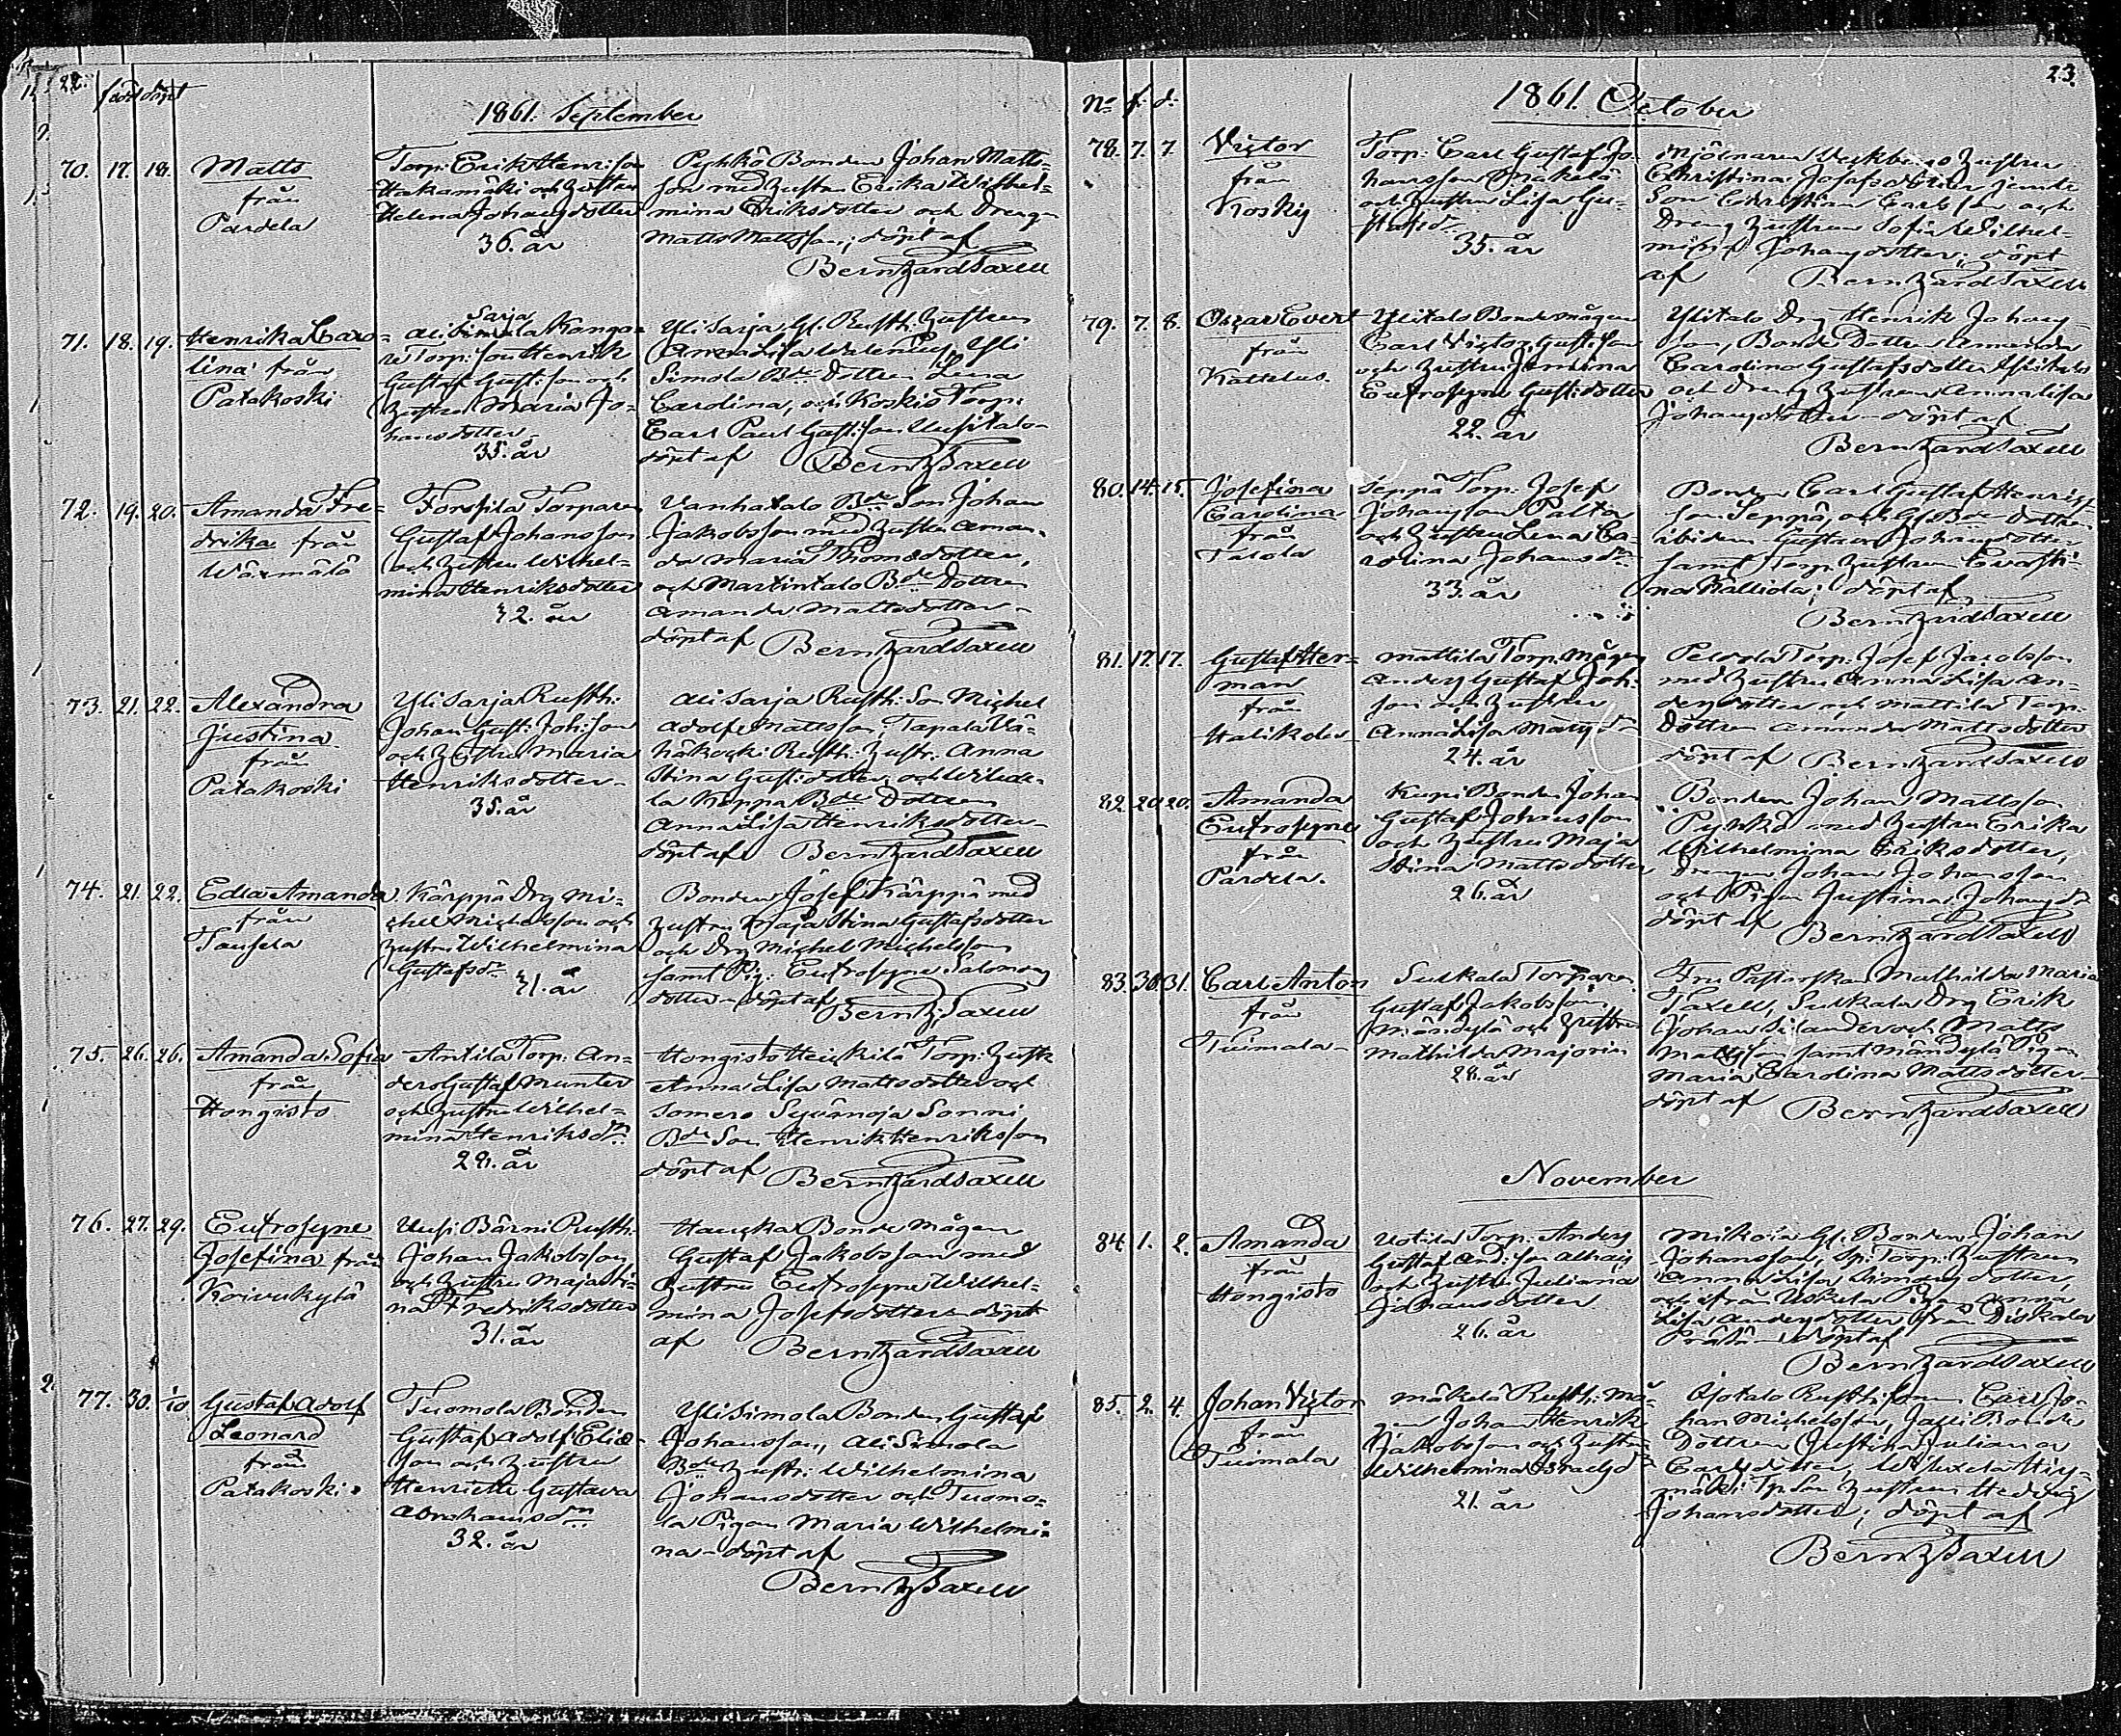 22.
född döpt
1861. September
70. 17. 18. Matts
från
Pardela
Torp: Erik Henriksson
Hakamäki och hustru
Helena Johansdotter
36. år
Pyhkö Bonden Johan Matts=
son med hustru Erika Wilhel=
mina Eriksdotter och Drengen
Matts Mattsson; döpt af
Berntz ard Saxell
71. 18. 19. Henrika Caro=
lina från
Patakoski
Sarja
Ali Simola Kanga
re Torp: son Henrik
Gustaf Gust: son och
hustru Maria Jo=
hansdotter
35. år
Yli Sarja Gl. Rusth: hustrun
Anna Lisa Yli
Simola Bde Dottren Lena
Carolina, och Koskis Torp:
Carl Paul Gust: son Uusitalo
döpt af Berntz Saxell
72. 19. 20. Amanda Fre=
drika från
Wärmälä
Torpare
Gustaf Johansson
och hustru Wilhel=
mina Henriksdotter
42. år
Vanhatalo Bde Son Johan
Jakobsson med hustru Aman=
da Maria Thomasdotter,
och Martintalo Bde Dottren
Amanda Mattsdotter
döpt af Berntzard Saxell
73. 21. 22. Alexandra
Justina
från
Patakoski
Yli Sarja Rusth:
Johan Gust: Joh: son
och hustru Maria
Henriksdotter
35. år
Ali Sarja Rusth: Son Michel
Adolf Mattsson, Tapala Vä=
häkoski Rusth: hustr: Anna
Stina Gust: dotter och
la Koppa Bde Dottren
Anna Lisa Henriksdotter
döpt af Berntzard Saxell
74. 21. 22. Edla Amanda
från
Tausela
Kärppä Drg Mi=
chel Michelsson och
hustru Wilhelmina
Gustafsdr
41. år
Bonden Josef Kärppä med
hustru Maja Stina Gustafsdotter
och Drg Michel Michelsson
samt Pig: Eufrosyne Salomons
dotter döpt af Berntz Saxell
75. 26. 26. Amanda Sofia
från
Hongisto
Antila Torp: An=
ders Gustaf Munter
och hustru Wilhel=
mina Henriksdr
28. år
Hongisto Heickilä Torp: hustr
Anna Lisa Mattsdotter och
Somero Syvänoja Sonni
Bde Son Henrik Henriksson
döpt af Berntzard Saxell
76. 27. 29. Eufrosyne
Josefina från
Koivukylä
Uusi Bärni Rusth:
Johan Jakobsson
och hustru Maja Sti=
na Fredriksdotter
31. år
Hauska Bonde mågen
Gustaf Jakobsson med
hustru Eufrosyne Wilhel=
mina Josefsdotter döpt
af Berntzard Saxell
77. 30. 1/10 Gustaf Adolf
Leonard
från
Patakoski
Tuomola Bonden
Gustaf Adolf Elias
son och hustru
Henriette Gustava
Abrahamsdr
32. år
Yli Simola Bonden Gustaf
Johansson, Ali Simola
Bde hustr: Wilhelmina
Johansdotter och Tuomo=
la Pigan Maria Wilhelmi=
na döpt af
Berntz Saxell
23.
No f. d.
1861. October
78. 7. 7. Victor
från
Koskis
Torp: Carl Gustaf Jo=
hansson Mäkelä
och hustru Lisa Gu=
stafsdr
35. år
Mjölnaren hustru
Christina Josefsdotter jemte
Son Christian Carlsson och
Dreng hustrun Sofia Wilhel=
mina Johansdotter; döpt
af Berntzard Saxell
79. 7. 8. Oscar Evert
från
Kattelus.
Ylitalo Bonde mågen
Carl Victor Gust: son
och hustru Jemina
Eufrosyne Gust: dotter
22. år
Ylitalo Drg Henrik Johans=
son, Bonde Dottren Amanda
Carolina Gustafsdotter Ylitalo
och Dreng hustrun Anna Lisa
Johansdotter döpt af
Berntzard Saxell
80. 14. 15. Josefina
Carolina
från
Talola
Seppä Torp: Josef
Johansson Palta
och hustru Lena Ca=
rolina Johansdr
33. år
Bonden Carl Gustaf Henriks
son Seppä, och Gl. Bde Dottren
ibidem Gustava Johansdotter
samt Torp: hustrun
na Kallida; döpt af
Berntzard Saxell
81. 17. 17. Gustaf Her=
man
från
Halikola
Mattila Torp. Mågen
Anders Gustaf Joh:
son och hustru
Anna Lisa Matts dr
24. år
Peldola Torp: Josef Jacobsson
med hustru Anna Lisa An=
dersdotter och Mattila Torp:
Dottren Amanda Mattsdotter
döpt af Berntzard Saxell
82. 20. 20. Amanda
Eufrosyne
från
Pardela.
Kupi Bonden Johan
Gustaf Johansson
och hustru Maja
Stina Mattsdotter
26. år
Bonden Johan Mattsson
Pyhkö med hustru Erika
Wilhelmina Eriksdotter,
Drengen Johan Johansson
och Pigan Justina Johansdr
döpt af
Berntzard Saxell
83. 30. 31. Carl Anton
från
Tuimala
Sulkala Torparen
Gustaf Jakobsson
Mändylä och hustru
Mathilda Majorin
28. år
Fru Pastorskan Mathilda Maria
Saxell, Sulkala Drg Erik
Johan Silander och Matts
Mattsson samt Mändylä Pigan
Maria Carolina Mattsdotter
döpt af Berntzard Saxell
November
84. 1. 2. Amanda
från
Hongisto
Uotila Torp: Anders
Gustaf And: son
och hustru Juliana
Johansdotter
26. år
Mikola Gl. Bonden Johan
Johansson, Torp: hustrun
Anna Lisa Simonsdotter
och från Uskela Pigan Anna
Lisa Andersdotter från
döpt af
Berntzard Saxell
85. 2. 4. Johan Victor
från
Tuimala
Mäkelä Rusth: Må=
gen Johan Henrik
Jakobsson och hustru
Wilhelmina Israelsdr
21. år
Ojotalo Rusth: Sonen Carl Jo=
han Michelsson, Jussi Bonde
Dottren Justina Juliana
Carlsdotter,
mäki Tp. Son hustrun Hedvig
Johansdotter; döpt af
Berntz Saxell